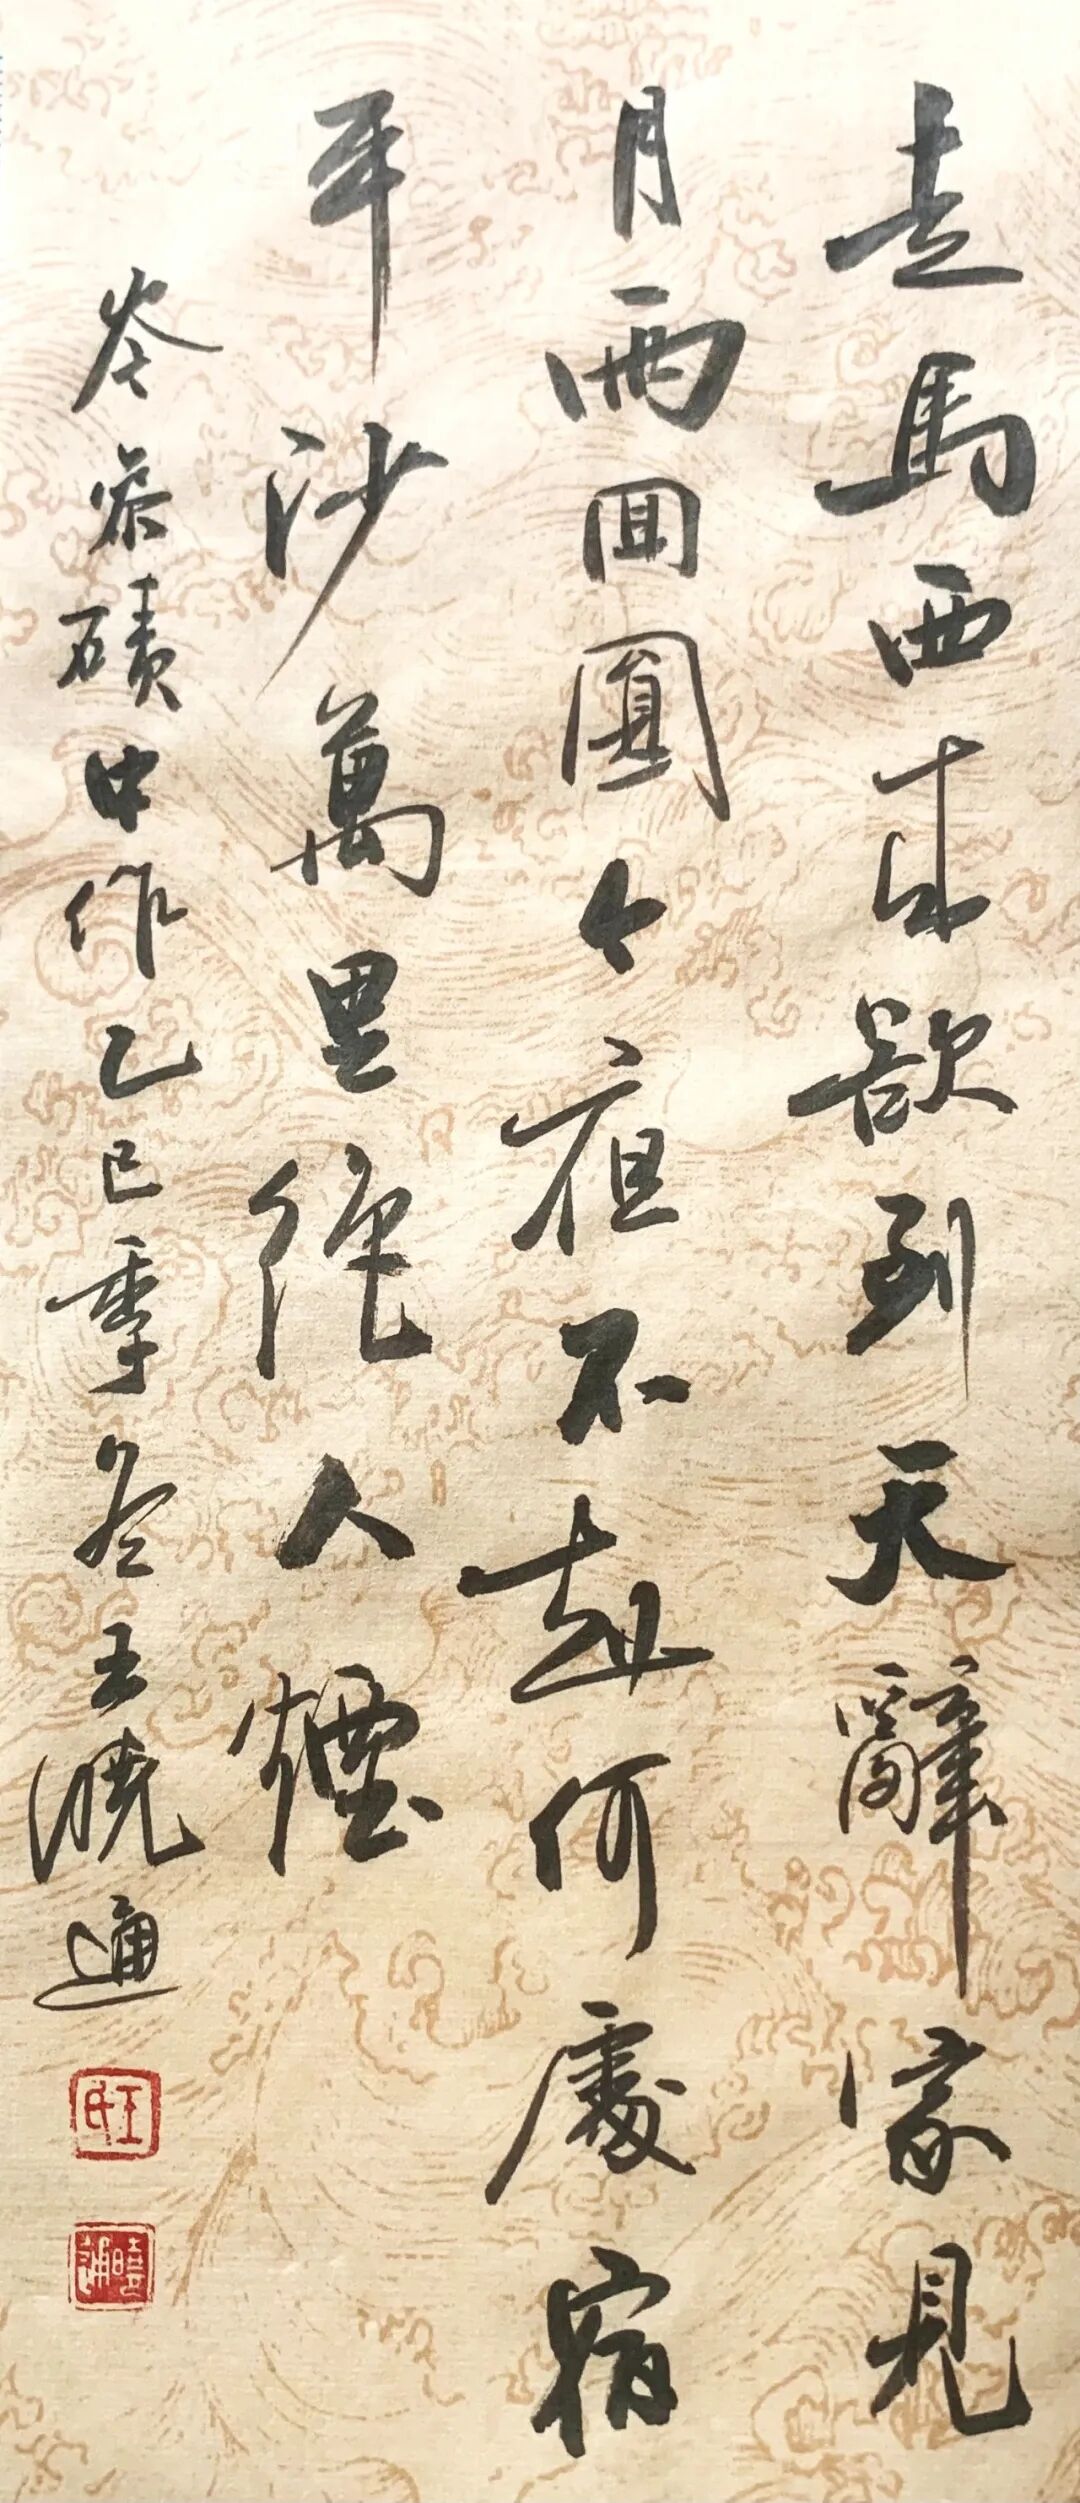 走馬西來欲到天辭家見
月兩回圓今不何處宿
平沙萬里絕人煙
岑參磧中作乙巳季冬王曉通
王氏